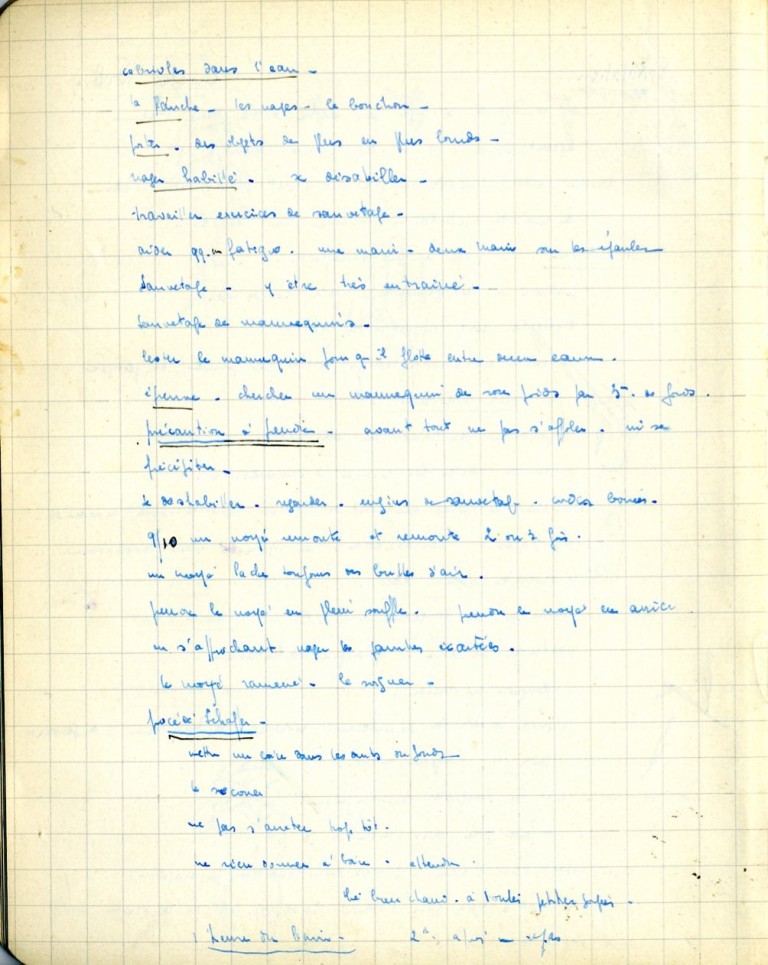 cabrioles dans l'eau -
la planche - les nages - le bouchon -
porter . des objets de plus en plus lourds -
nager habillé . se déshabiller -
travailler exercices de sauvetage -
aider qq.un fatigué . une main - deux mains sur les épaules
Sauvetage - y être très entrainé -
Sauvetage de mannequins -
lester le mannequin pour qu'il flotte entre deux eaux .
épreuve . chercher un mannequin de son poids par 3m. de fond .
précaution à prendre - avant tout ne pas s'affoler . ni se
précipiter -
se deshabiller . regarder . engins de sauvetage . bouées .
9/10 un noyé remonte et remonte 2 ou 3 fois .
un noyé lache toujours des bulles d'air .
prendre le noyé en plein souffle . prendre le noyé en arrière .
en s'approchant nager les jambes écartées .
le noyé ramené - le soigner -
procédé Schafer -
mettre un dans les dents
le secouer
ne pas s'arreter trop tôt .
ne rien donner à boire . attendre .
thé bien chaud . à toutes petites gorgées -
heure du bain - 2h. après